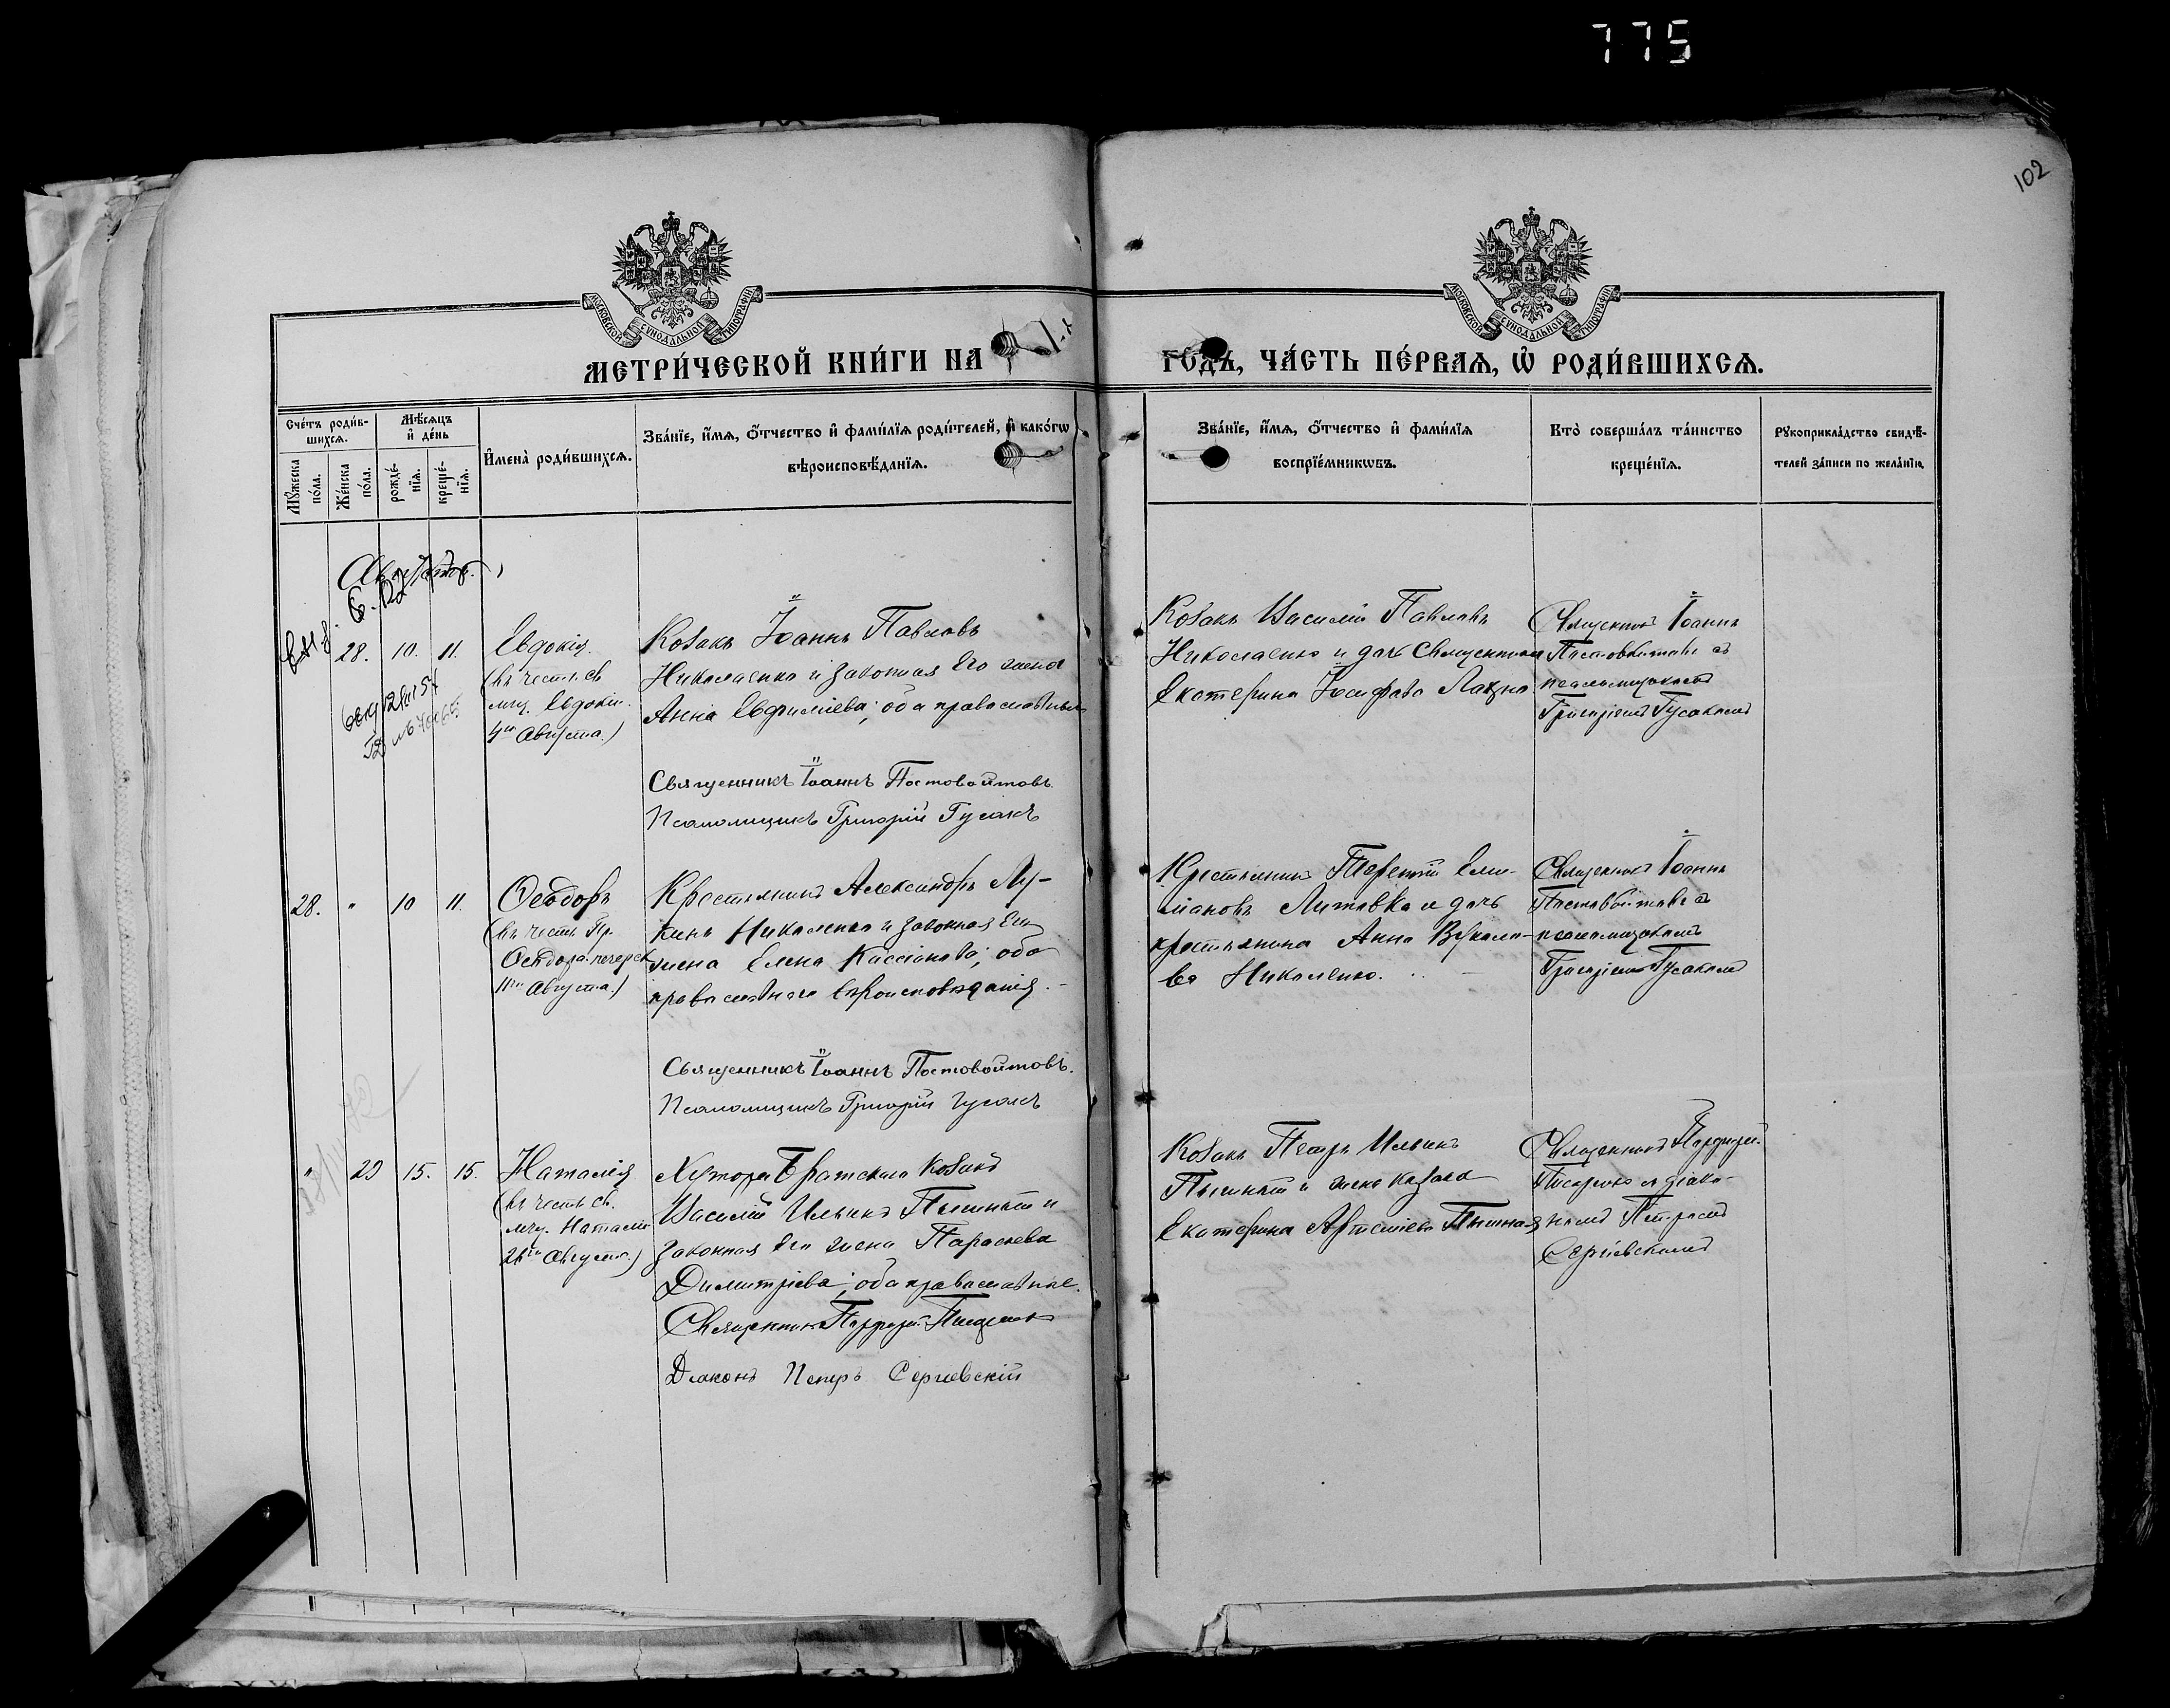 775
102
МОСКОВСКОЙ СѴНОДАЛЬНОЙ ТИПОГРАФІИ
МОСКОВСКОЙ СѴНОДАЛЬНОЙ ТИПОГРАФІИ
МЕТРИ́ЧЕСКОЙ КНИ́ГИ НА
ГО́ДЪ, ЧА́СТЬ ПЕ́РВАЯ, Ѡ҆ РОДИ́ВШИХСЯ.
Сче́тъ роди́в-
шихся.
Мѣ́сяцъ
и҆ де́нь
Мꙋ́жеска
по́ла.
Же́нска
по́ла.
рожде́-
нїѧ.
креще́-
нїѧ.
И҆мена̀ роди́вшихся.
Зва́нїе, и҆́мя, ѻ҆́тчество и҆ фами́лїя роди́телей, и҆ како́гѡ
вѣроисповѣ́данїя.
Зва́нїе, и҆́мя, ѻ҆́тчество и҆ фами́лїя
воспрїе́мникѡвъ.
Кто̀ соверша́лъ та́инство
креще́нїя.
Рꙋкоприкла́дство свидѣ́-
телей за́писи по жела́нїю.
28. 10. 11.
Евдокія.
(въ честь св.
мчц. Евдокіи
4го Августа.)
Козакъ Іоаннъ Павловъ
Николаенко и законная его жена
Анна Евфиміева; оба православные
Священникъ Іоаннъ Постовойтовъ.
Псаломщикъ Григорій Гусакъ
Козакъ Василій Павловъ
Николаенко и дочь Священника
Екатерина Іосифова
Священникъ Іоаннъ
Постовойтовъ съ
псаломщикомъ
Григоріемъ Гусакомъ
28. " 10 11.
Ѳеодоръ
(въ честь Пр.
Ѳеодора печерск.
11го Августа.)
Крестьянинъ Александръ Лу-
кинъ Николенко и законная его
жена Елена Кассіанова; оба
православнаго вѣроисповѣданія.
Священникъ Іоаннъ Постовойтовъ.
Псаломщикъ Григорій Гусакъ
Крестьянинъ Терентій Еми-
ліановъ Литовка и дочь
крестьянина Анна
ва Николенко.
Священникъ Іоаннъ
Постовойтовъ съ
псаломщикомъ
Григоріемъ Гусакомъ
" 29 15. 15.
Наталія
(въ честь св.
мчц. Наталіи
26го Августа.)
Хутора Братскаго Козакъ
Василій Ильинъ Пышный и
законная его жена Параскева
Димитріева; оба православные.
Священникъ Порфирій
Діаконъ Петръ Сергіевскій
Козакъ Петръ Ильинъ
Пышный и жена козака
Екатерина Артеміева Пышная
Священникъ Порфирій
съ діако-
номъ Петромъ
Сергіевскимъ